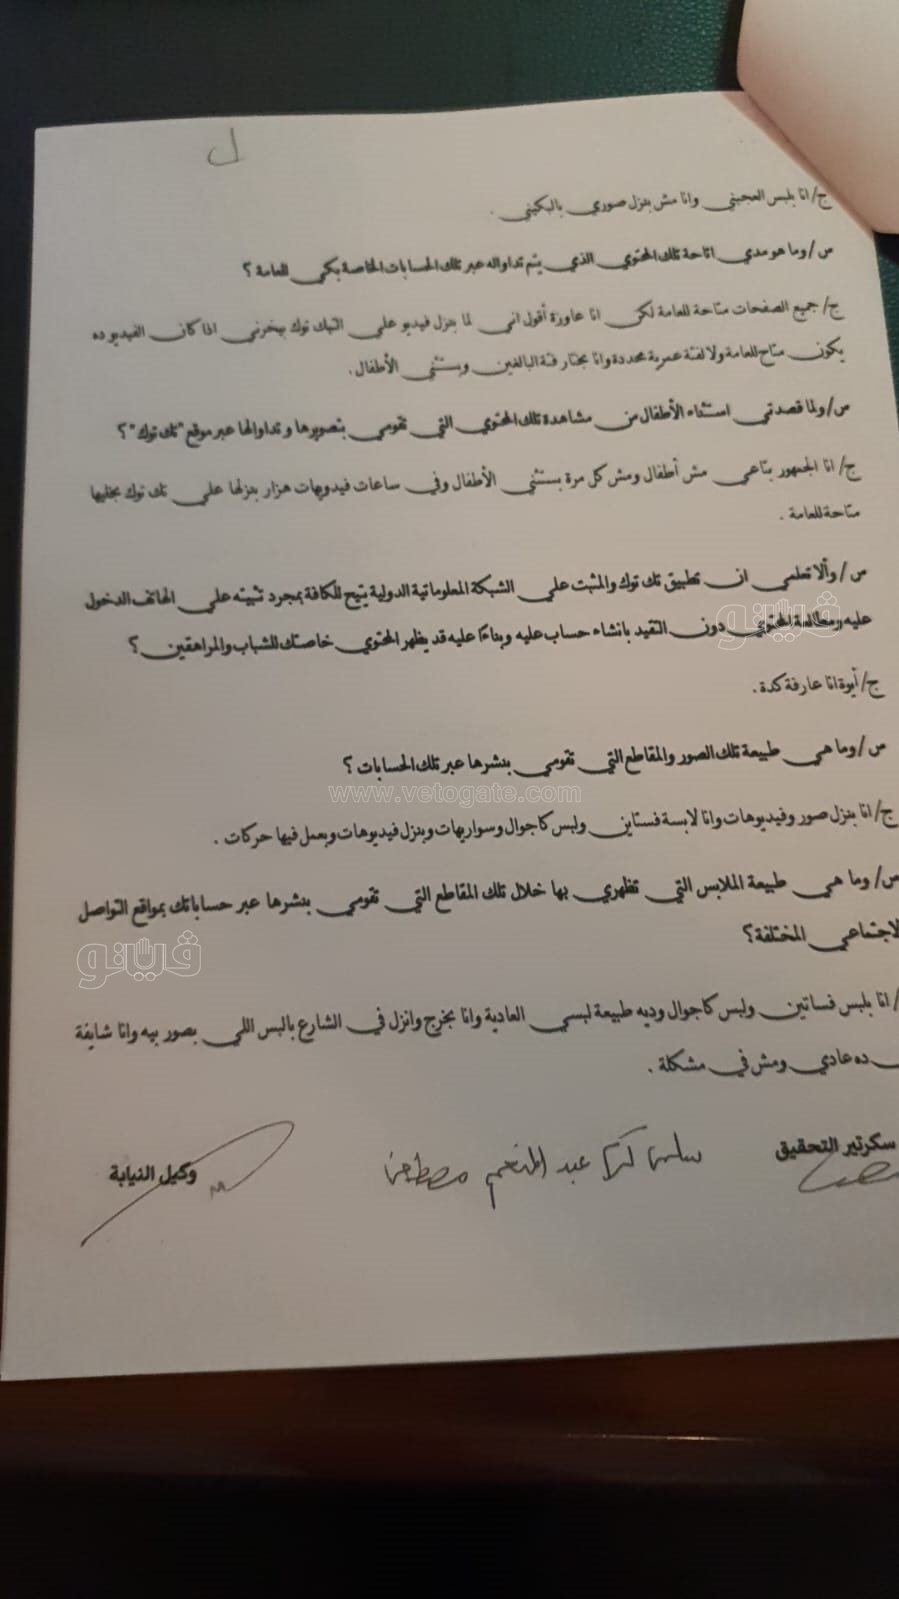 ل
ج/ انا بلبس العجبني وانا مش بنزل صوري بالبكيني .
س/ وما هو مدي اتاحة تلك المحتوي الذي يتم تداواله عبر تلك الحسابات الخاصة بكي للعامة ؟
ج/ جميع الصفحات متاحة للعامة لكن انا عاوزة أقول اني لما بنزل فيديو علي التيك توك بيخرني اذا كان الفيديو ده
يكون متاح للعامة ولا لفئة عمرية محددة وانا بختار فئة البالغين وبستثني الأطفال .
س/ ولما قصدتي استثناء الأطفال من مشاهدة تلك المحتوي التي تقومي بتصويرها وتداوالها عبر موقع "تك توك" ؟
ج/ انا الجمهور بتاعي مش أطفال ومش كل مرة بستثني الأطفال وفي ساعات فيديوهات هزار بنزلها علي تك توك بخليها
متاحة للعامة .
س/ وألا تعلمي ان تطبيق تك توك والمثبت علي الشبكة المعلوماتية الدولية يتيح للكافة بمجرد تثبيته علي الهاتف الدخول
عليه ومطالعة المحتوي دون التقيد بانشاء حساب عليه وبناءا عليه قد يظهر المحتوي خاصتك للشباب والمراهقين ؟
ج/ أيوة انا عارفة كدة .
س/ وما هي طبيعة تلك الصور والمقاطع التي تقومي بنشرها عبر تلك الحسابات ؟
www.vetogate.com
ج/ انا بنزل صور وفيديوهات وانا لابسة فستاين ولبس كاجوال وسواريهات وبنزل فيديوهات وبعمل فيها حركات .
س/ وما هي طبيعة الملابس التي تظهري بها خلال تلك المقاطع التي تقومي بنشرها عبر حساباتك بمواقع التواصل
لاجتماعي المختلفة ؟
ڤيتو
/ انا بلبس فساتين ولبس كاجوال وديه طبيعة لبسي العادية وانا بخرج وانزل في الشارع بالبس اللي بصور بيه وانا شايفة
ده عادي ومش في مشكلة .
سكرتير التحقيق
عبد المنعم مصطفى
وكيل النيابة